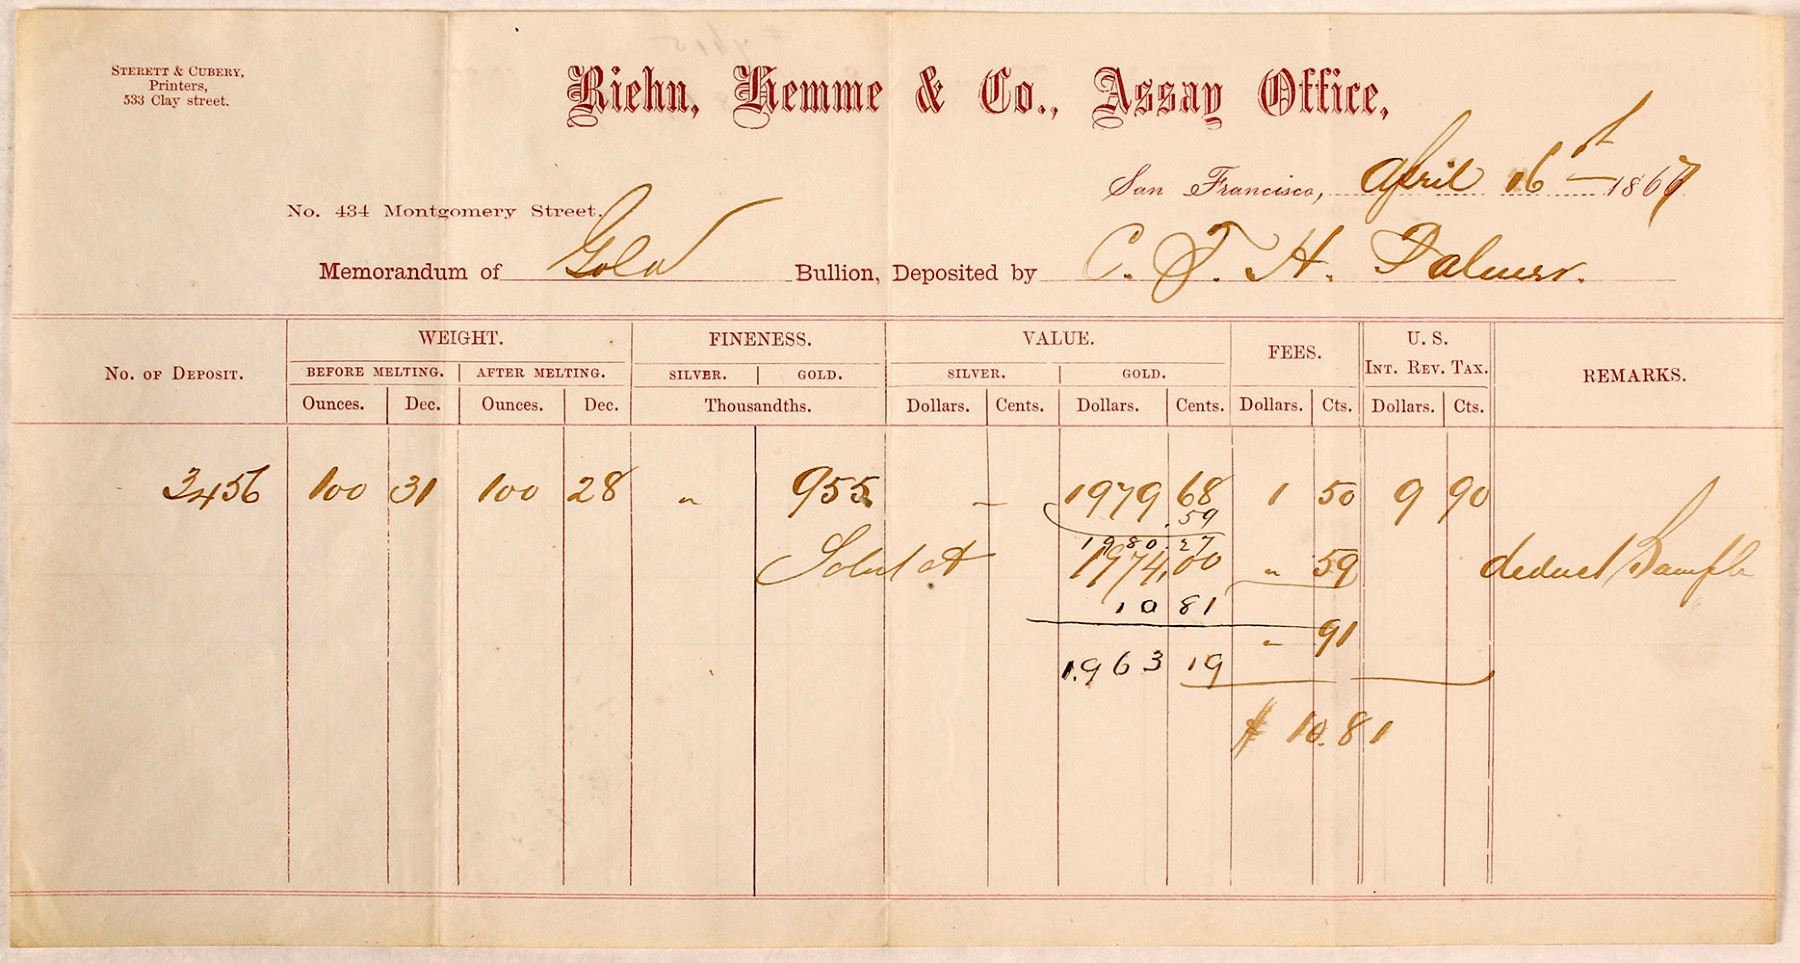 STERETT & CUBERY,
Printers,
533 Clay street.
Riehn, Hemme & Co., Assay Office,
San Francisco, April 16st 1867
No. 434 Montgomery Street.
Memorandum of Gold Bullion, Deposited by C. T. H. Palmer.
No. OF DEPOSIT. WEIGHT. FINENESS. VALUE. FEES. U. S. INT. REV. TAX. REMARKS.
BEFORE MELTING. AFTER MELTING. SILVER. GOLD. SILVER. GOLD.
Ounces. Dec. Ounces. Dec. Thousandths. Dollars. Cents. Dollars. Cents. Dollars. Cts. Dollars. Cts.
3456 100 31 100 28 " 955 — 1979 68 1 50 9 90
.59
1980.27
Sold at 1974.00 " 59 deduct Sample
10 81
" 91
1.963 19
$ 10.81